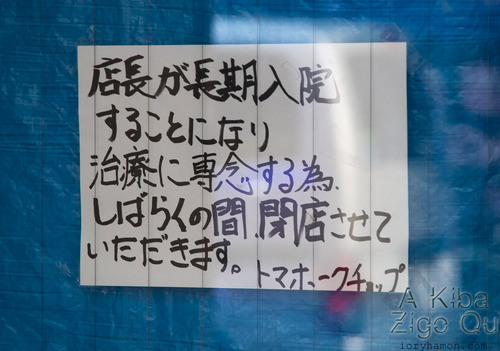 店長が長期入院
することになり
治療に専念する為、
しばらくの間、閉店させて
いただきます。
トマホークチョップ
A Kiba
Zigo Qu
ioryhamon.com